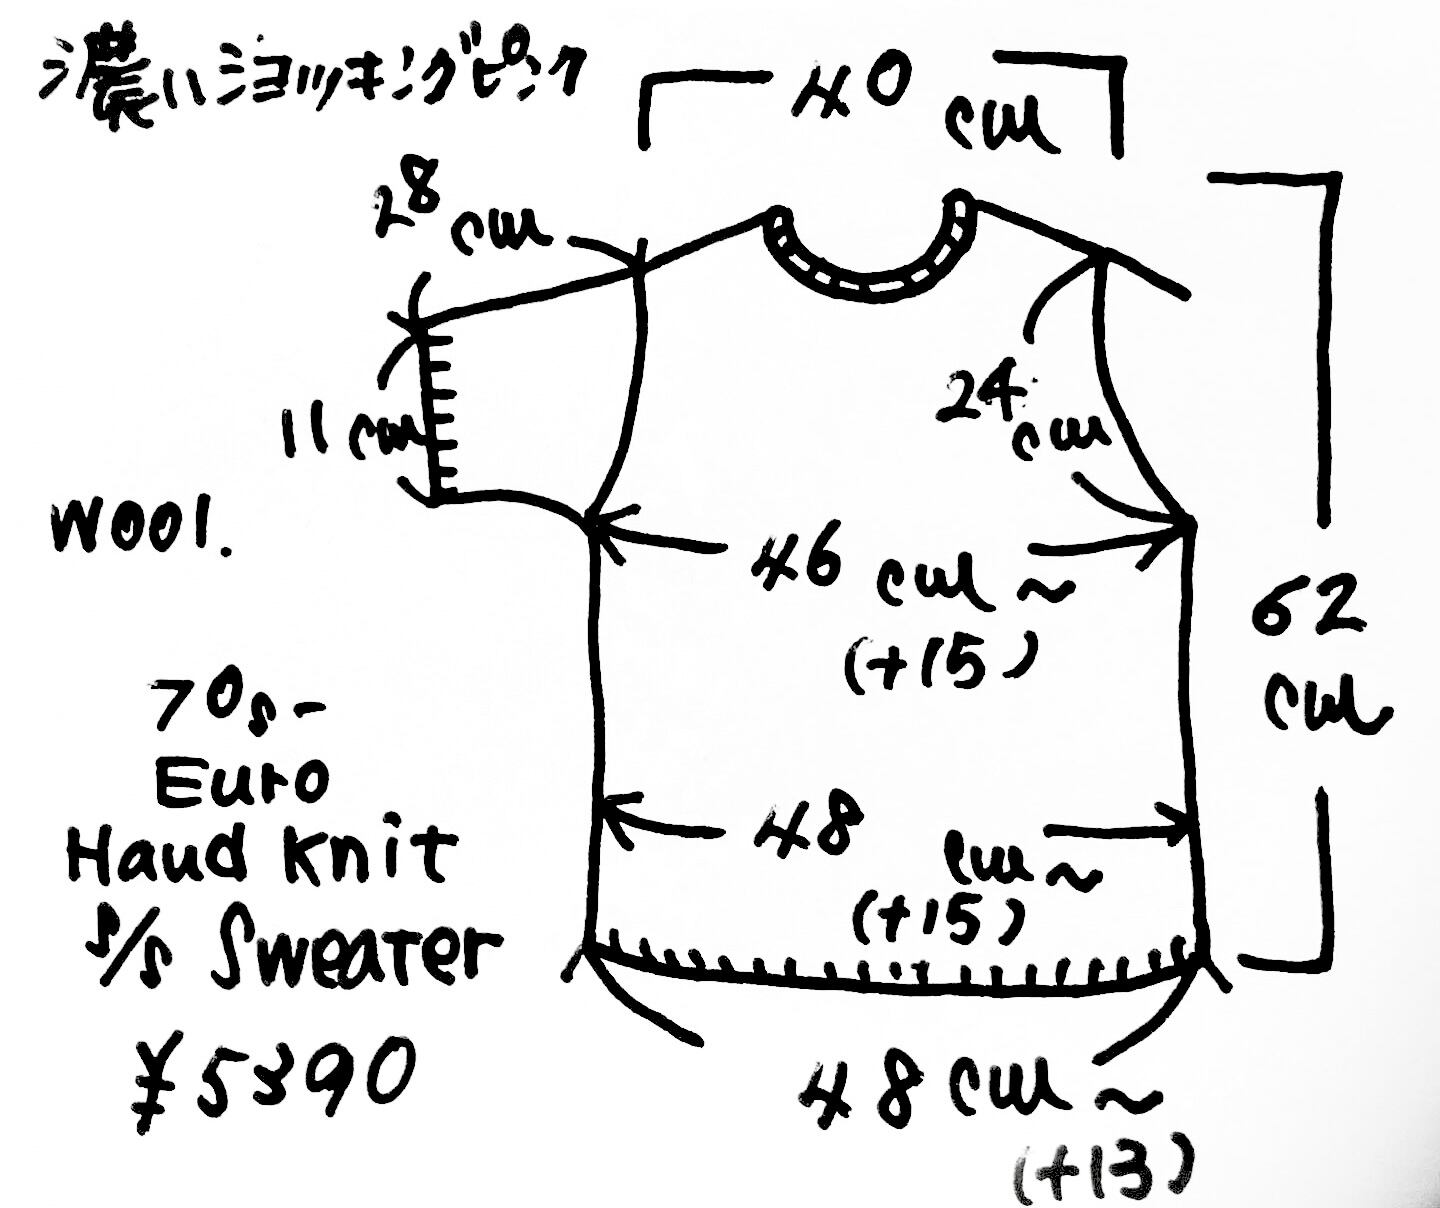 濃いショッキングピンク
40 cm
28 cm
11 cm
24 cm
wool.
46 cm~
(+15)
62 cm
70s-
Euro
Hand Knit
s/s Sweater
¥5390
48 cm~
(+15)
48 cm~
(+13)